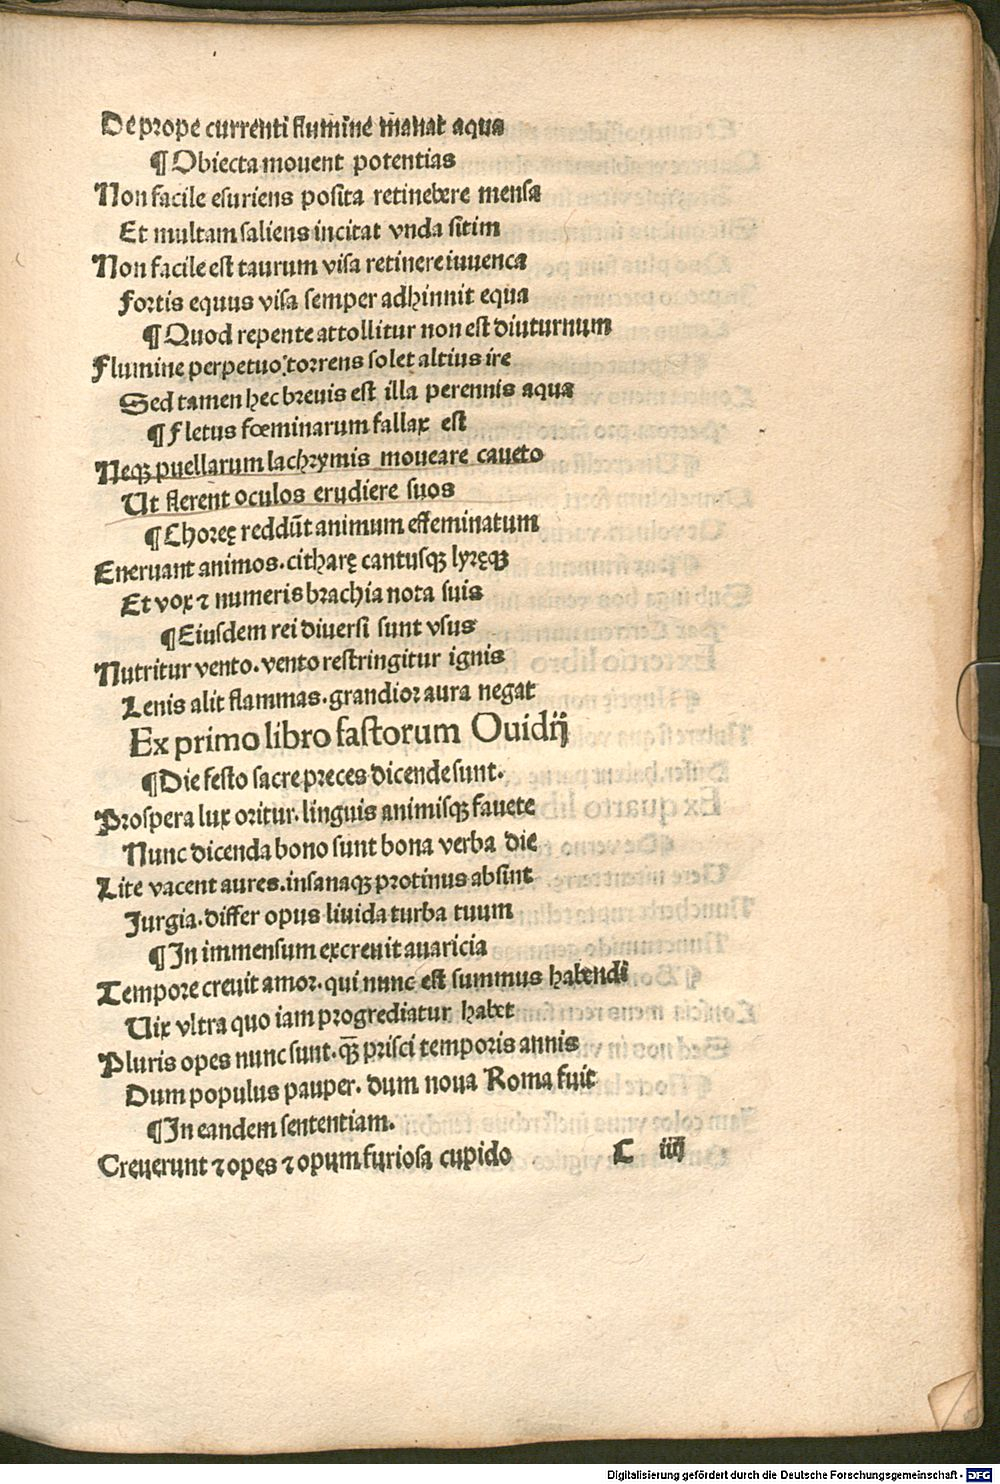 De prope currenti flumine manat aqua
¶ Obiecta mouent potentias
Non facile esuriens posita retinebere mensa
Et multam saliens incitat vnda sitim
Non facile est taurum visa retinere iuuenca
Fortis equus visa semper adhinnit equa
¶ Quod repente attollitur non est diuturnum
Flumine perpetuo: torrens solet altius ire
Sed tamen hec breuis est illa perennis aqua
¶ Fletus fœminarum fallax est
Neqꝫ puellarum lachrymis moueare caueto
Ut flerent oculos erudiere suos
¶ Choreę reddūt animum effeminatum
Eneruant animos. citharę cantusqꝫ lyręqꝫ
Et vox ⁊ numeris brachia nota suis
¶ Eiusdem rei diuersi sunt vsus
Nutritur vento. vento restringitur ignis
Lenis alit flammas. grandior aura negat
Ex primo libro fastorum Ouidij
¶ Die festo sacre preces dicende sunt.
Prospera lux oritur. linguis animisqꝫ fauete
Nunc dicenda bono sunt bona verba die
Lite vacent aures. insanaqꝫ protinus absint
Jurgia. differ opus liuida turba tuum
¶ In immensum excreuit auaricia
Tempore creuit amor. qui nunc est summus habendi
Uix vltra quo iam progrediatur habet
Pluris opes nunc sunt. qꝫ̄ prisci temporis annis
Dum populus pauper. dum noua Roma fuit
¶ In eandem sententiam.
Creuerunt ⁊ opes ⁊ opum furiosa cupido C iiij
Digitalisierung gefördert durch die Deutsche Forschungsgemeinschaft - DFG